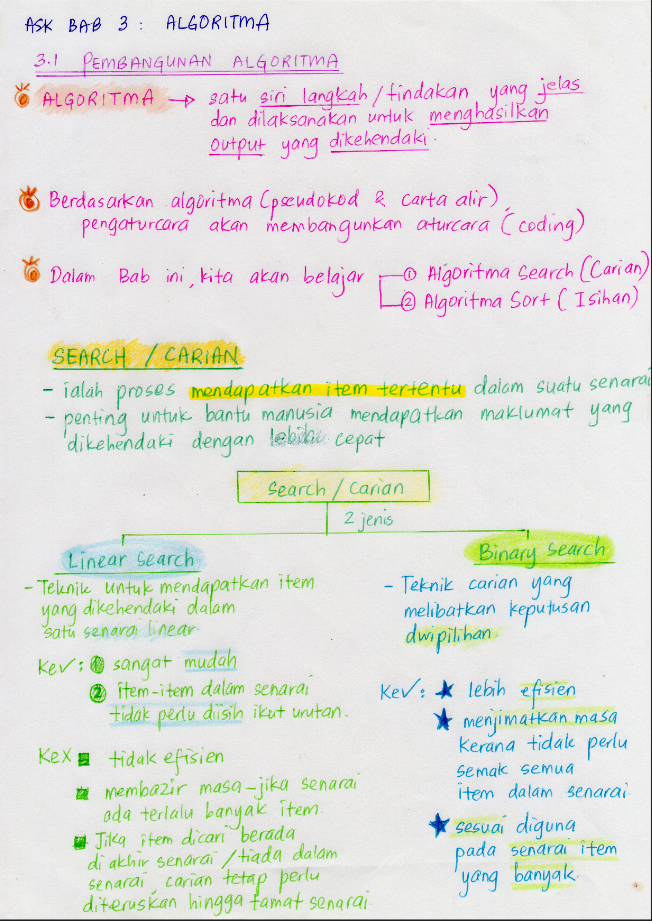 ASK BAB 3 : ALGORITMA
3.1 PEMBANGUNAN ALGORITMA
ALGORITMA → satu siri langkah/tindakan yang jelas
dan dilaksanakan untuk menghasilkan
output yang dikehendaki.
Berdasarkan algoritma (pseudokod & carta alir),
pengaturcara akan membangunkan aturcara (coding)
Dalam Bab ini, kita akan belajar ① Algoritma Search (Carian)
② Algoritma Sort (Isihan)
SEARCH / CARIAN
- ialah proses mendapatkan item tertentu dalam suatu senarai
- penting untuk bantu manusia mendapatkan maklumat yang
dikehendaki dengan lebih cepat
Search / Carian
2 jenis
Linear Search
- Teknik untuk mendapatkan item
yang dikehendaki dalam
satu senarai linear.
Ke✓: ① sangat mudah
② item-item dalam senarai
tidak perlu diisih ikut urutan.
Kex ■ tidak efisien
■ membazir masa - jika senarai
ada terlalu banyak item.
■ Jika item dicari berada
di akhir senarai / tiada dalam
senarai, carian tetap perlu
diteruskan hingga tamat senarai.
Binary Search
- Teknik carian yang
melibatkan keputusan
dwipilihan.
Ke✓: ★ lebih efisien
★ menjimatkan masa
kerana tidak perlu
semak semua
item dalam senarai.
★ sesuai diguna
pada senarai item
yang banyak.